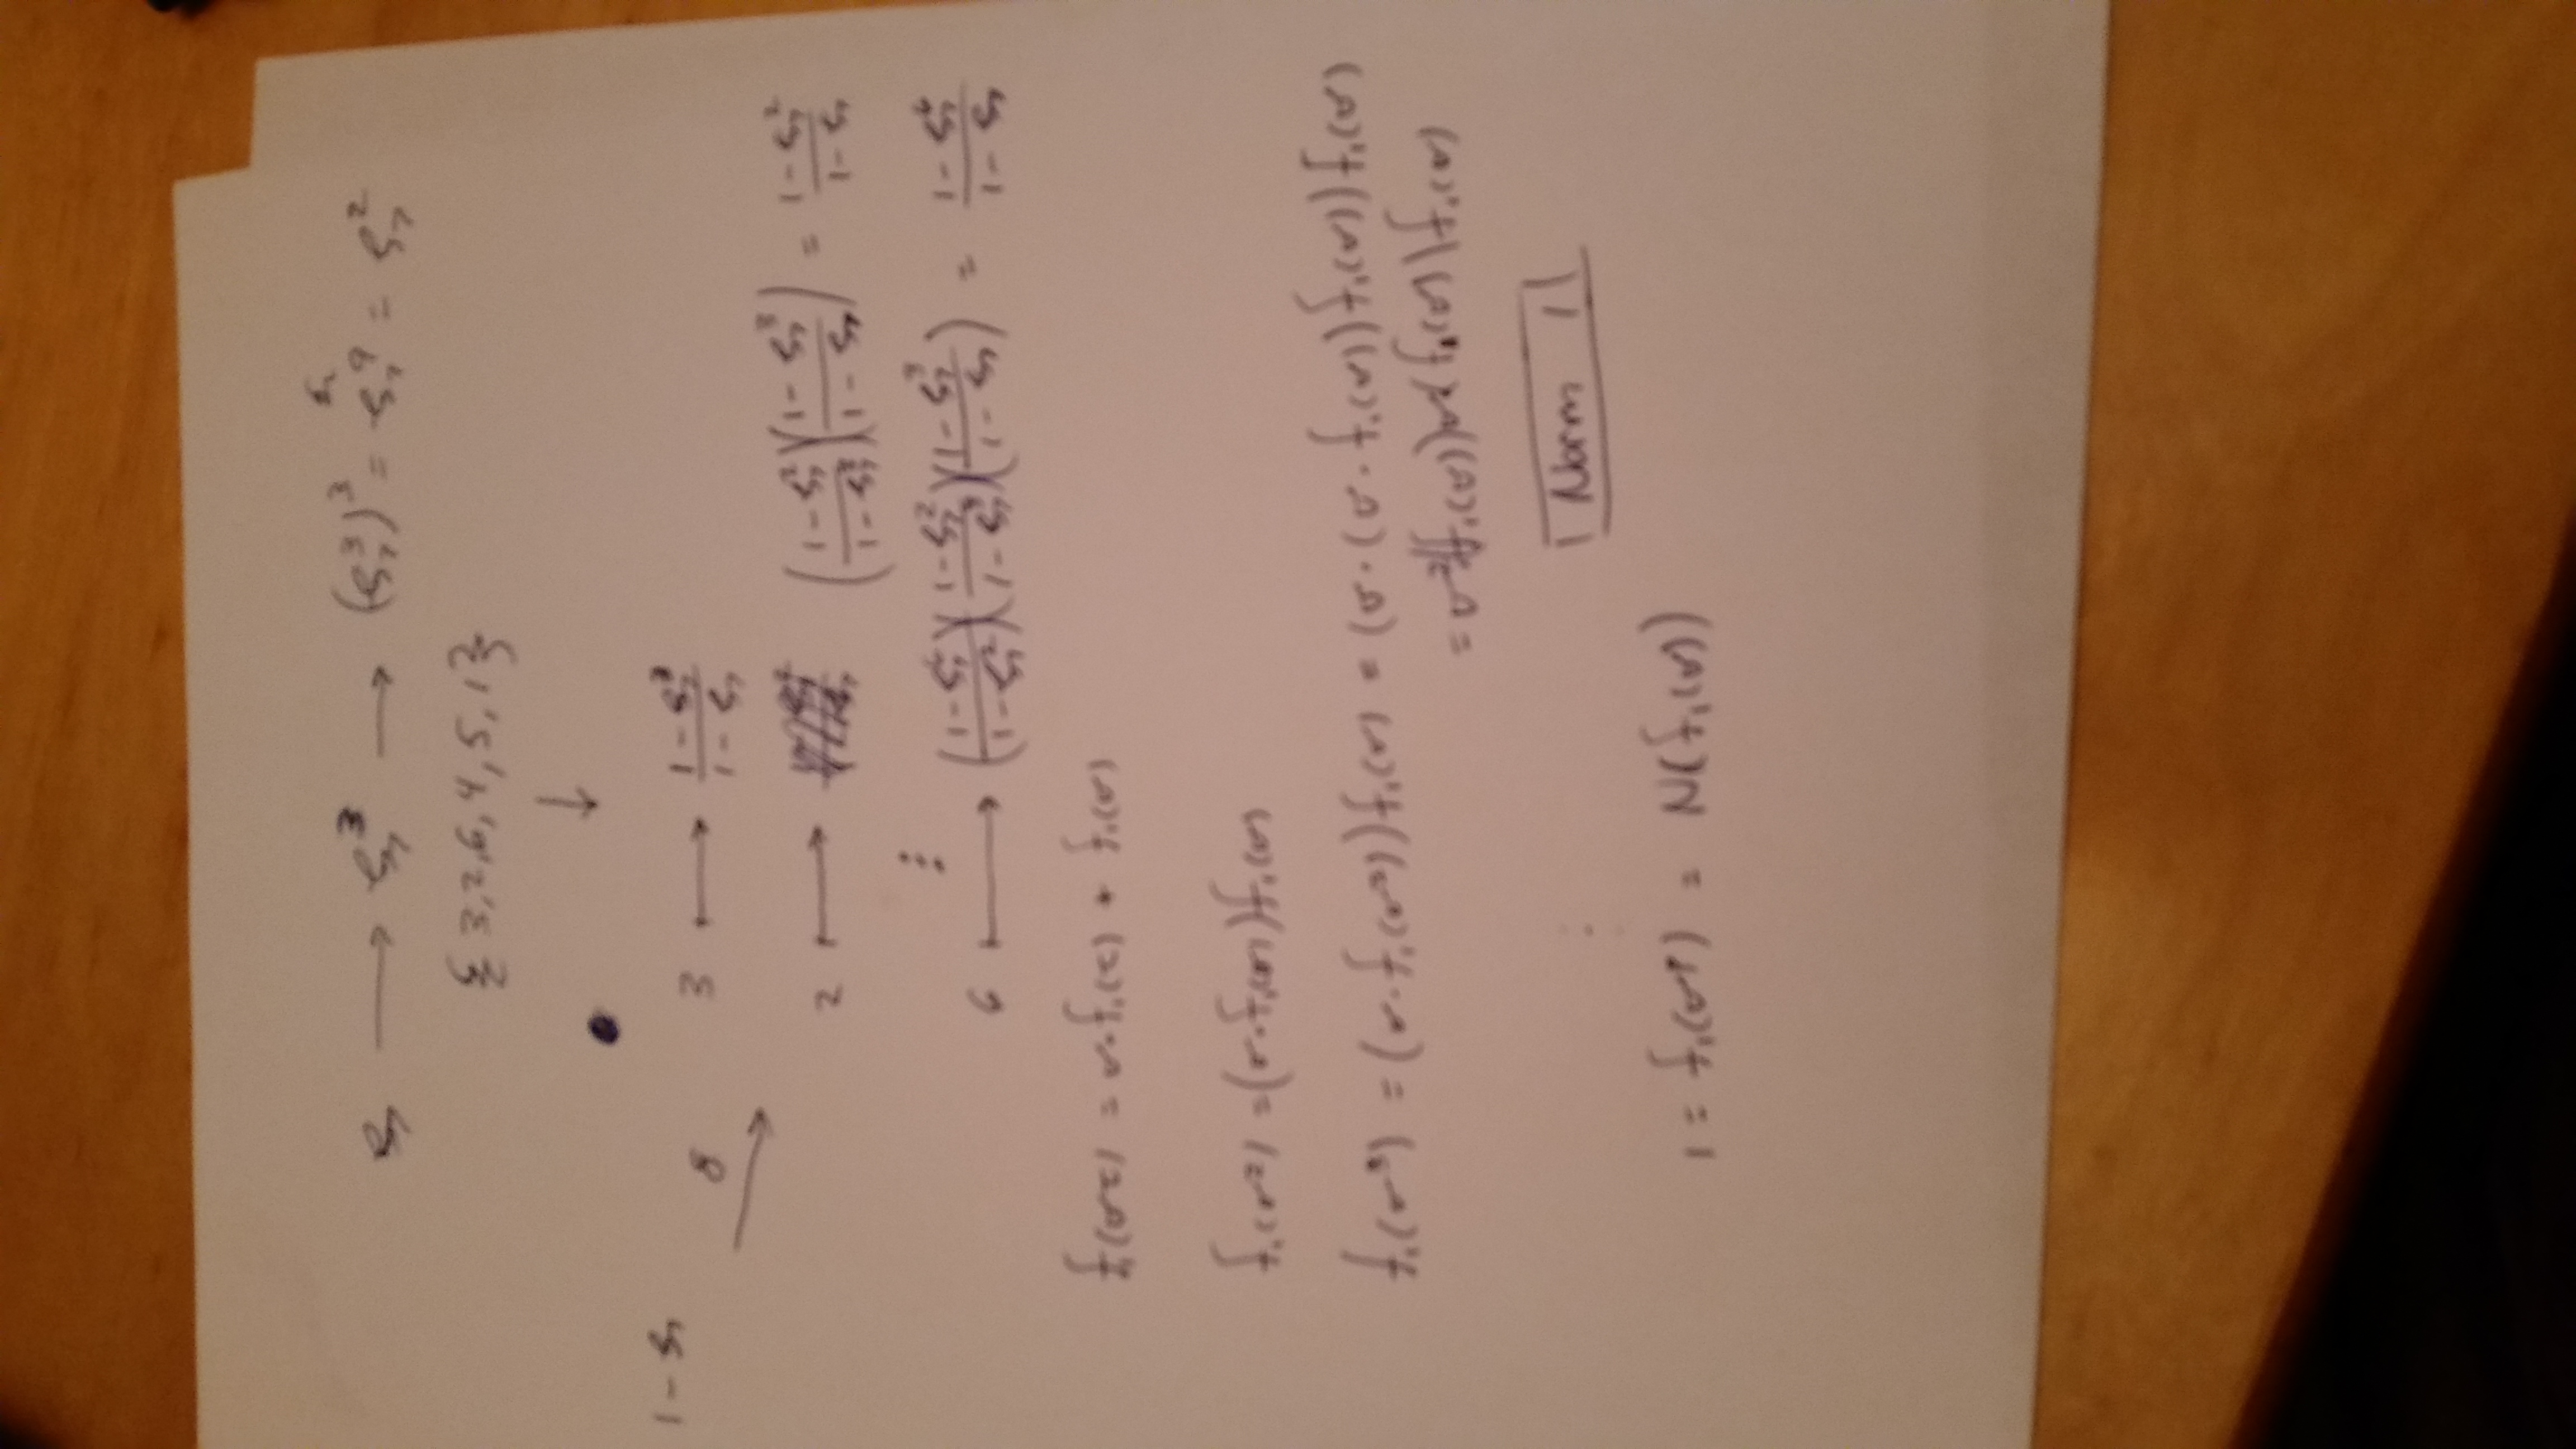 ζ₇ → ζ₇³ → (ζ₇³)³ = ζ₇⁹ = ζ₇²
{3,2,6,4,5,1}
↓
1 - ζ₇
8 →
3 ↦ (1 - ζ₇³)/(1 - ζ₇)
2 ↦ ((1 - ζ₇²)/(1 - ζ₇³))((1 - ζ₇³)/(1 - ζ₇)) = (1 - ζ₇²)/(1 - ζ₇)
⋮
6 ↦ ((1 - ζ₇⁶)/(1 - ζ₇²))((1 - ζ₇²)/(1 - ζ₇³))((1 - ζ₇³)/(1 - ζ₇)) = (1 - ζ₇⁶)/(1 - ζ₇)
f₁(στ) = σ·f₁(τ) + f₁(σ)
f₁(σ²) = (σ·f₁(σ))f₁(σ)
f₁(σ³) = (σ·f₁(σ²))f₁(σ) = (σ·(σ·f₁(σ))f₁(σ))f₁(σ)
= σ²(f₁(σ))σ(f₁(σ))f₁(σ)
Norm 1
⋮
1 = f₁(σᵖ) = N(f₁(σ))